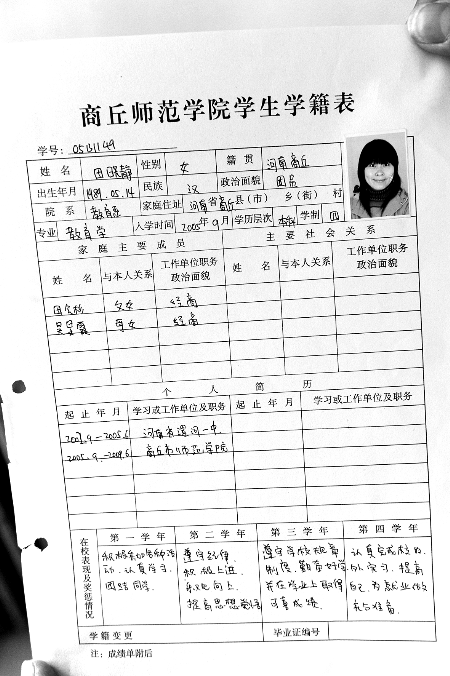 商丘师范学院学生学籍表
学号：05131149
姓名 田晓静 性别 女 籍贯 河南商丘
出生年月 1989.05.14 民族 汉 政治面貌 团员
院系 教育系 家庭住址 河南省商丘县（市） 乡（街） 村
专业 教育学 入学时间 2005年9月 学历层次 本科 学制 四
家庭主要成员 主要社会关系
姓名 与本人关系 工作单位职务政治面貌 姓名 与本人关系 工作单位职务政治面貌
父女 经商
母女 经商
个人简历
起止年月 学习或工作单位及职务 起止年月 学习或工作单位及职务
一中
2005.9 商丘市师范学院
在校表现及奖惩情况
第一学年 第二学年 第三学年 第四学年
积极参加各种活动，认真学习，团结同学。
遵守纪律 积极上进 积极向上 提高思想觉悟
遵守学校规章制度，勤奋好学 并在学业上取得可喜成绩。
认真完成校内外实习，提高自己，为就业做充分准备。
学籍变更 毕业证编号
注：成绩单附后